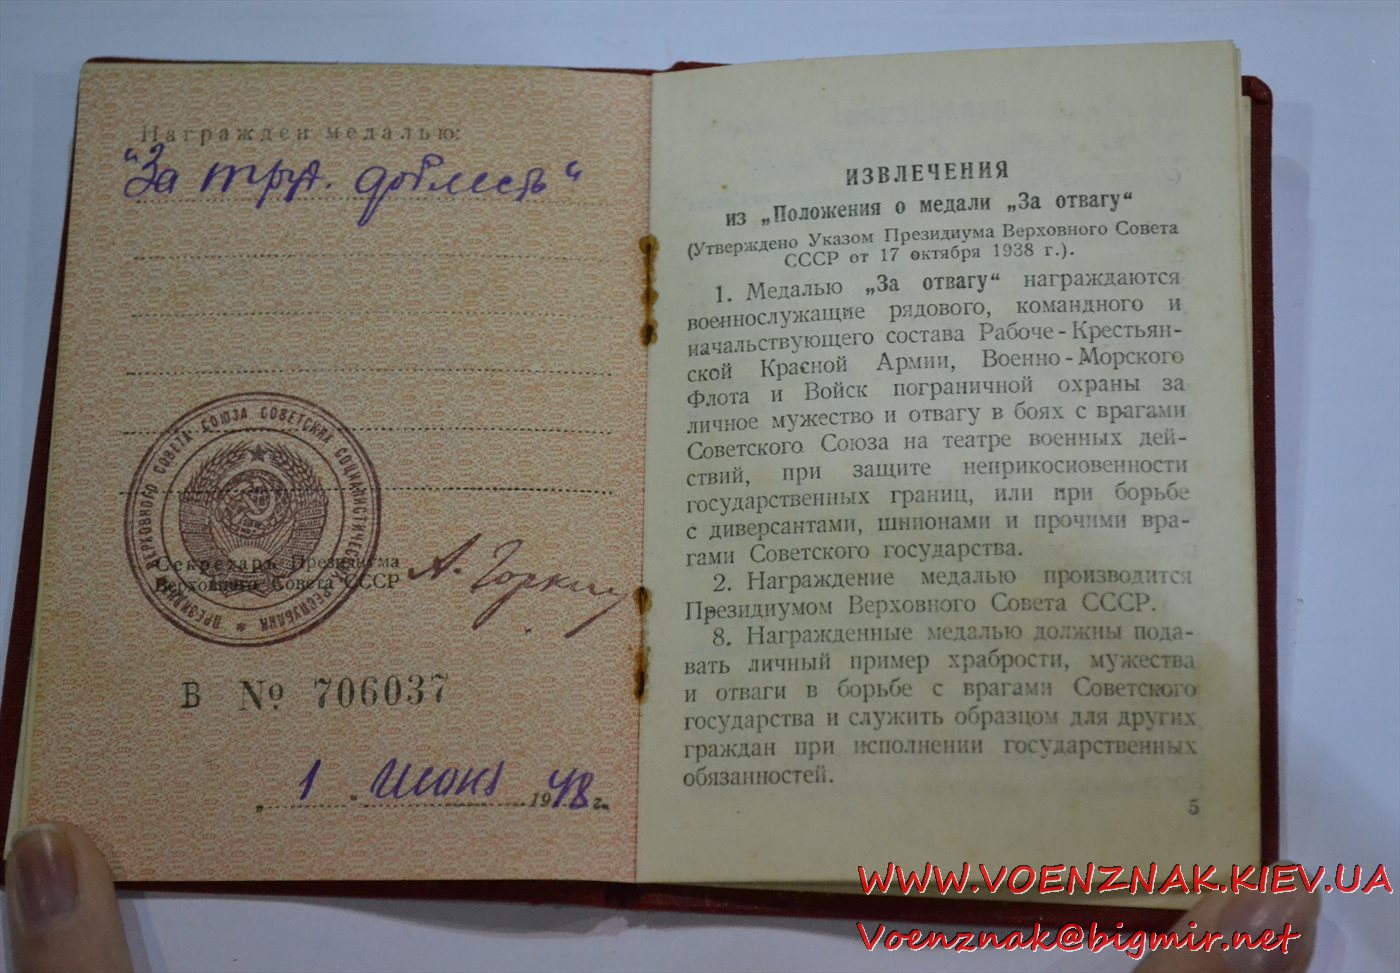 Награжден медалью:
"За труд. доблесть"
ПРЕЗИДИУМ ВЕРХОВНОГО СОВЕТА СОЮЗА СОВЕТСКИХ СОЦИАЛИСТИЧЕСКИХ РЕСПУБЛИК *
Секретарь Президиума
Верховного Совета СССР
А. Горкин
В № 706037
„ 1 " июня 1948 г.
ИЗВЛЕЧЕНИЯ
из „Положения о медали „За отвагу“
(Утверждено Указом Президиума Верховного Совета
СССР от 17 октября 1938 г.).
1. Медалью „За отвагу“ награждаются
военнослужащие рядового, командного и
начальствующего состава Рабоче-Крестьян-
ской Красной Армии, Военно-Морского
Флота и Войск пограничной охраны за
личное мужество и отвагу в боях с врагами
Советского Союза на театре военных дей-
ствий, при защите неприкосновенности
государственных границ, или при борьбе
с диверсантами, шпионами и прочими вра-
гами Советского государства.
2. Награждение медалью производится
Президиумом Верховного Совета СССР.
8. Награжденные медалью должны пода-
вать личный пример храбрости, мужества
и отваги в борьбе с врагами Советского
государства и служить образцом для других
граждан при исполнении государственных
обязанностей.
5
WWW.VOENZNAK.KIEV.UA
Voenznak@bigmir.net